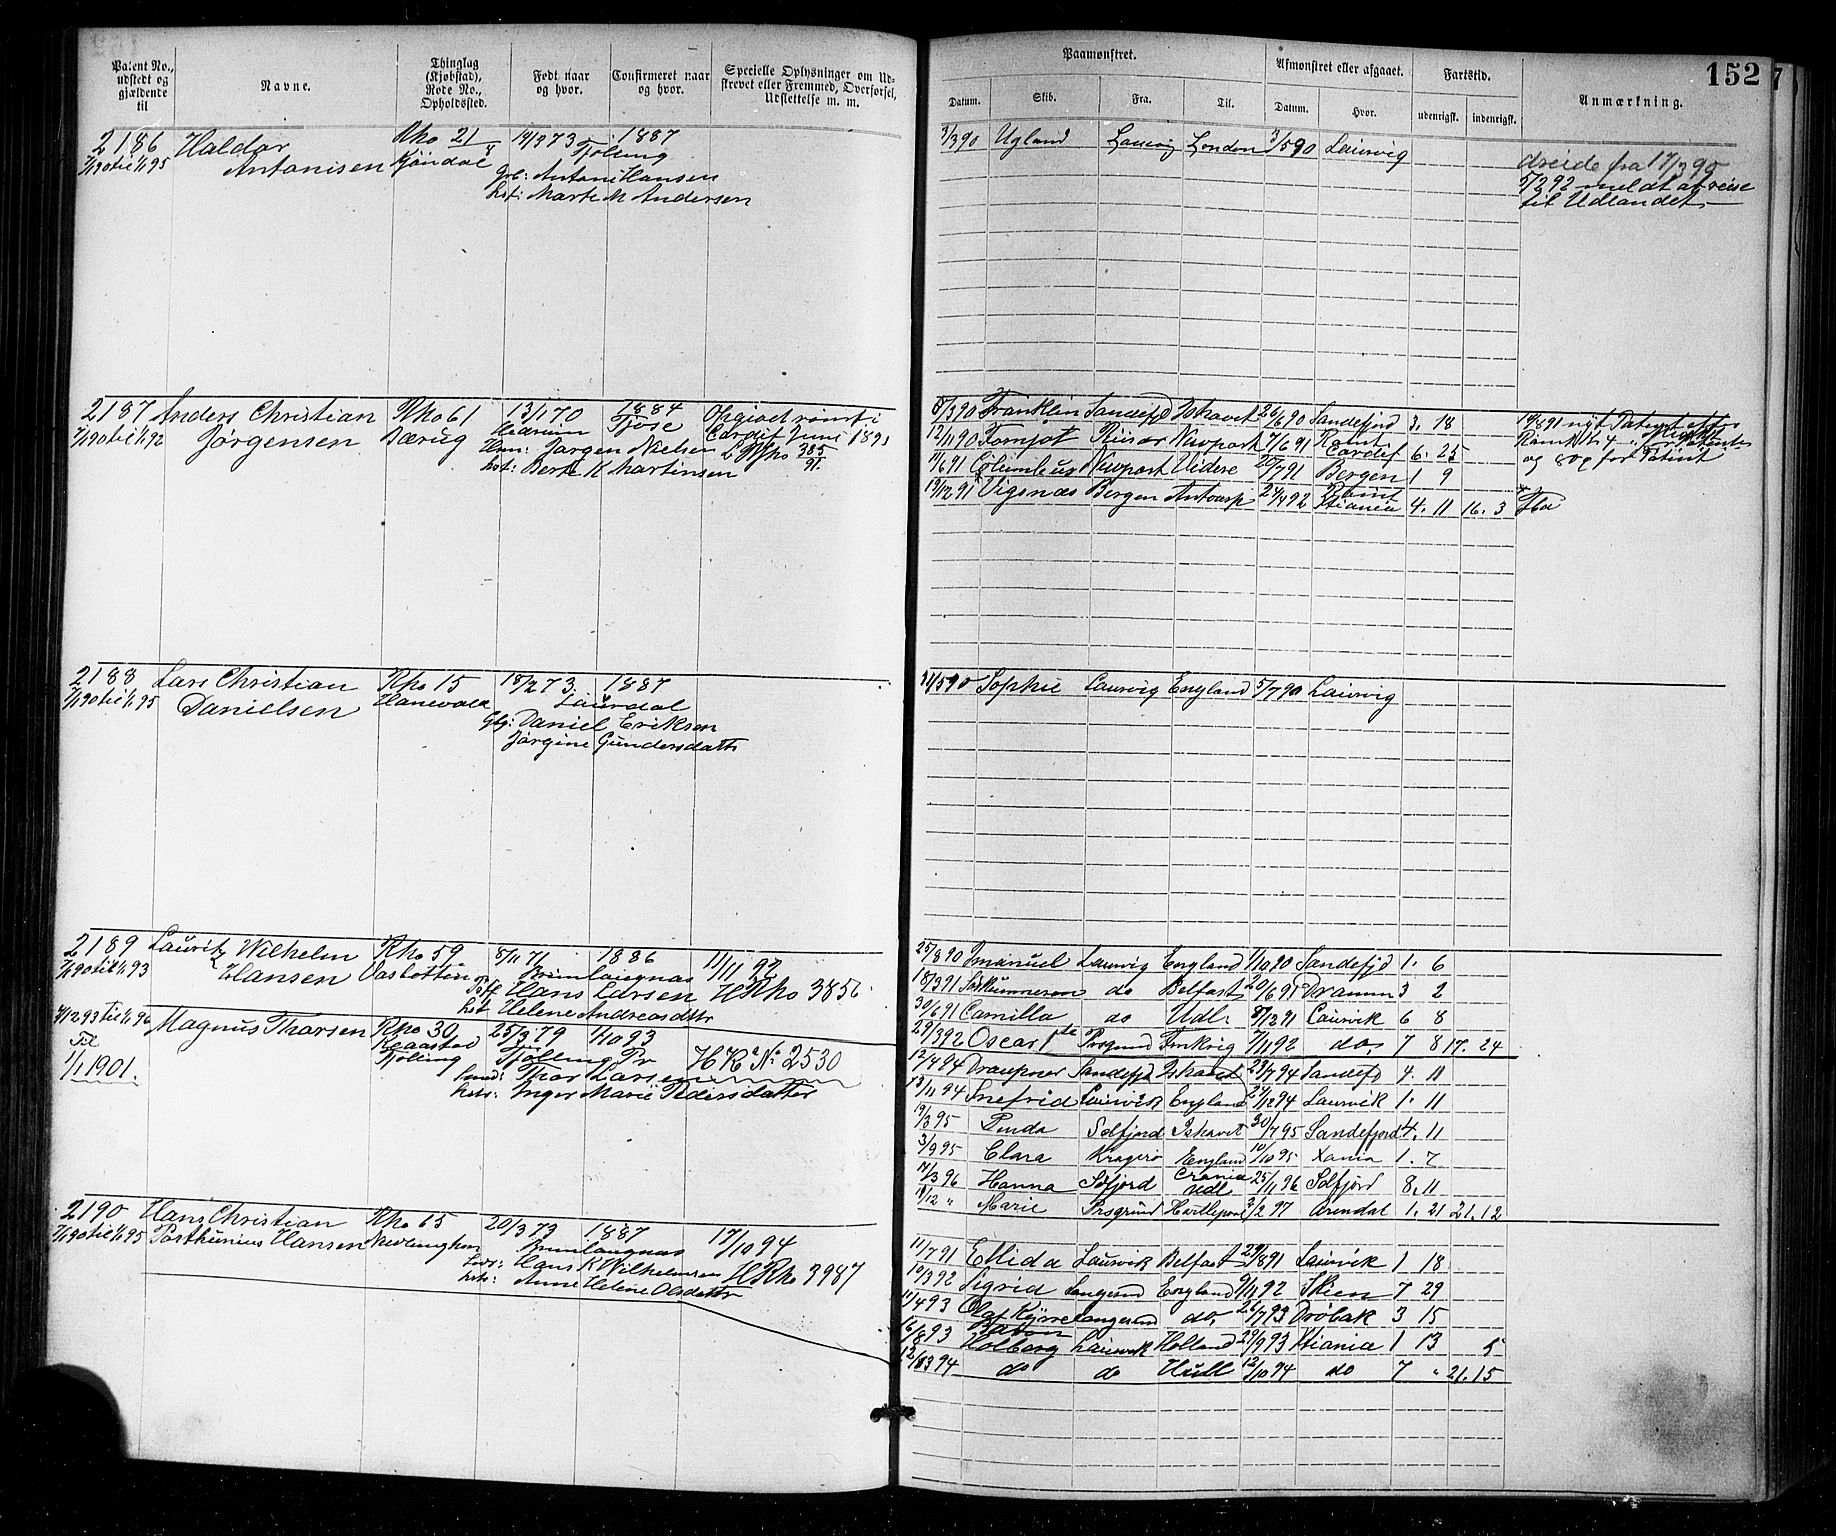 152
Patent No., udstedt og gjældende til
Navne.
Thinglag (Kjøbstad), Rode No., Opholdssted.
Født naar og hvor.
Confirmeret naar og hvor.
Specielle Oplysninger om Udskrevet eller Fremmed, Overførsel, Udslettelse m. m.
Paamønstret.
Afmønstret eller afgaaet.
Fartstid.
Anmærkning.
Datum.
Skib.
Fra.
Til.
Datum.
Hvor.
udenrigsk.
indenrigsk.
2186 Haldor Rno 21 14/3 73 1887
7/1 90 til 1/1 95 Antonisen Kjøndal Tjølling
Antoni Hansen
Marte M Andersen
3/3 90 Ugland Laurvig London 3/5 90 Laurvig
dreide fra 17/3 90
5/2 92 meldt at reise
til Udlandet
2187 Anders Christian Rno 61 13/1 70 1884
7/1 90 til 1/1 92 Jørgensen Bærug Hedrum Tjøse Cardif Juni 1891
Jørgen Nielsen 385/91
Berte K Martinsen
8/3 90 Franklin Sandefjd Ishavet 26/6 90 Sandefjord 3. 18
12/11 90 Fornjot Risør Newport 7/6 91 Rømt Cardif 6. 25
11/6 91 Columbus Newport Videre 20/7 91 Bergen 1 9
19/12 91 Vigsnæs Bergen Antwerp 24/4 92 Xtiania 4. 11 16. 3
14/8 91 nyt Patent
og 80 ø for Patent
2188 Lars Christian Rno 15 18/2 73 1887
7/1 90 til 1/1 95 Danielsen Hanevold Laurdal
Daniel Erikson
Jørgine Gundersdattr
21/5 90 Sophie Laurvig England 5/7 90 Laurvig
2189 Lauritz Wilhelm Rno 59 8/11 71 1886 11/11 92
7/1 90 til 1/1 93 Hansen Brunlangnæs
Hans Larsen HRno 3856
Helene Andreasdattr
25/8 90 Imanuel Laurvig England 1/10 90 Sandefjd 1. 6
18/3 91 do Belfast 20/6 91 Dramm 3 2
30/6 91 Camilla do Udl. 8/12 91 Laurvik 6 8
29/3 92 Oscar 1ste 7/11 92 do, 7 8 17. 24
4/12 93 til 1/1 96 Magnus Thorsen Rno 30 25/3 79 4/10 93
Til Kaarstad Tjølling Pr HR No 2530
1/1 1901. Tjølling Thor Larsen
Inger Marie Pedersdatter
12/4 94 Draupner Sandefjd Ishavet 23/7 94 Sandefj 4. 11
13/11 94 Snefrid Laurvik England 24/12 94 Laurvik 1. 11
19/3 95 Sdfjord Ishavet 30/7 95 Sandefjord 4. 11
3/9 95 Clara Kragerø England 10/10 95 Xania 1. 7
17/3 96 Hanna Sdfjord Udl. 25/11 96 Sdfjord 8. 11
11/12 " Marie Prsgrund Hartlepool 2/2 97 Arendal 1. 21 21. 12
2190 Hans Christian Rno 65 20/3 73 1887 17/10 94
7/1 90 til 1/1 95 Posthumius Hansen Brunlangnæs
Hans K Wilhelmsen HRno 3987
Anne Helene Olsdattr
11/7 91 Ellida Laurvik Belfast 29/8 91 Laurvik 1 18
10/3 92 Sigrid Langesund England 9/11 92 Skien 7 29
11/4 93 Olaf Kyrre Langesund do, 26/7 93 Drøbak 3 15
16/8 93 Holberg Laurvik Holland 29/9 93 Xtiania 1 13 5
12/3 94 do do Hull 12/10 94 do 7 " 21. 15